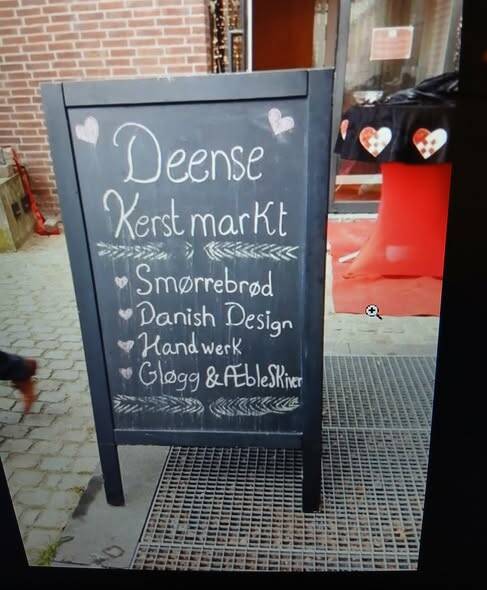 Deense
Kerstmarkt
Smørrebrød
Danish Design
Handwerk
Gløgg & Æbleskiver